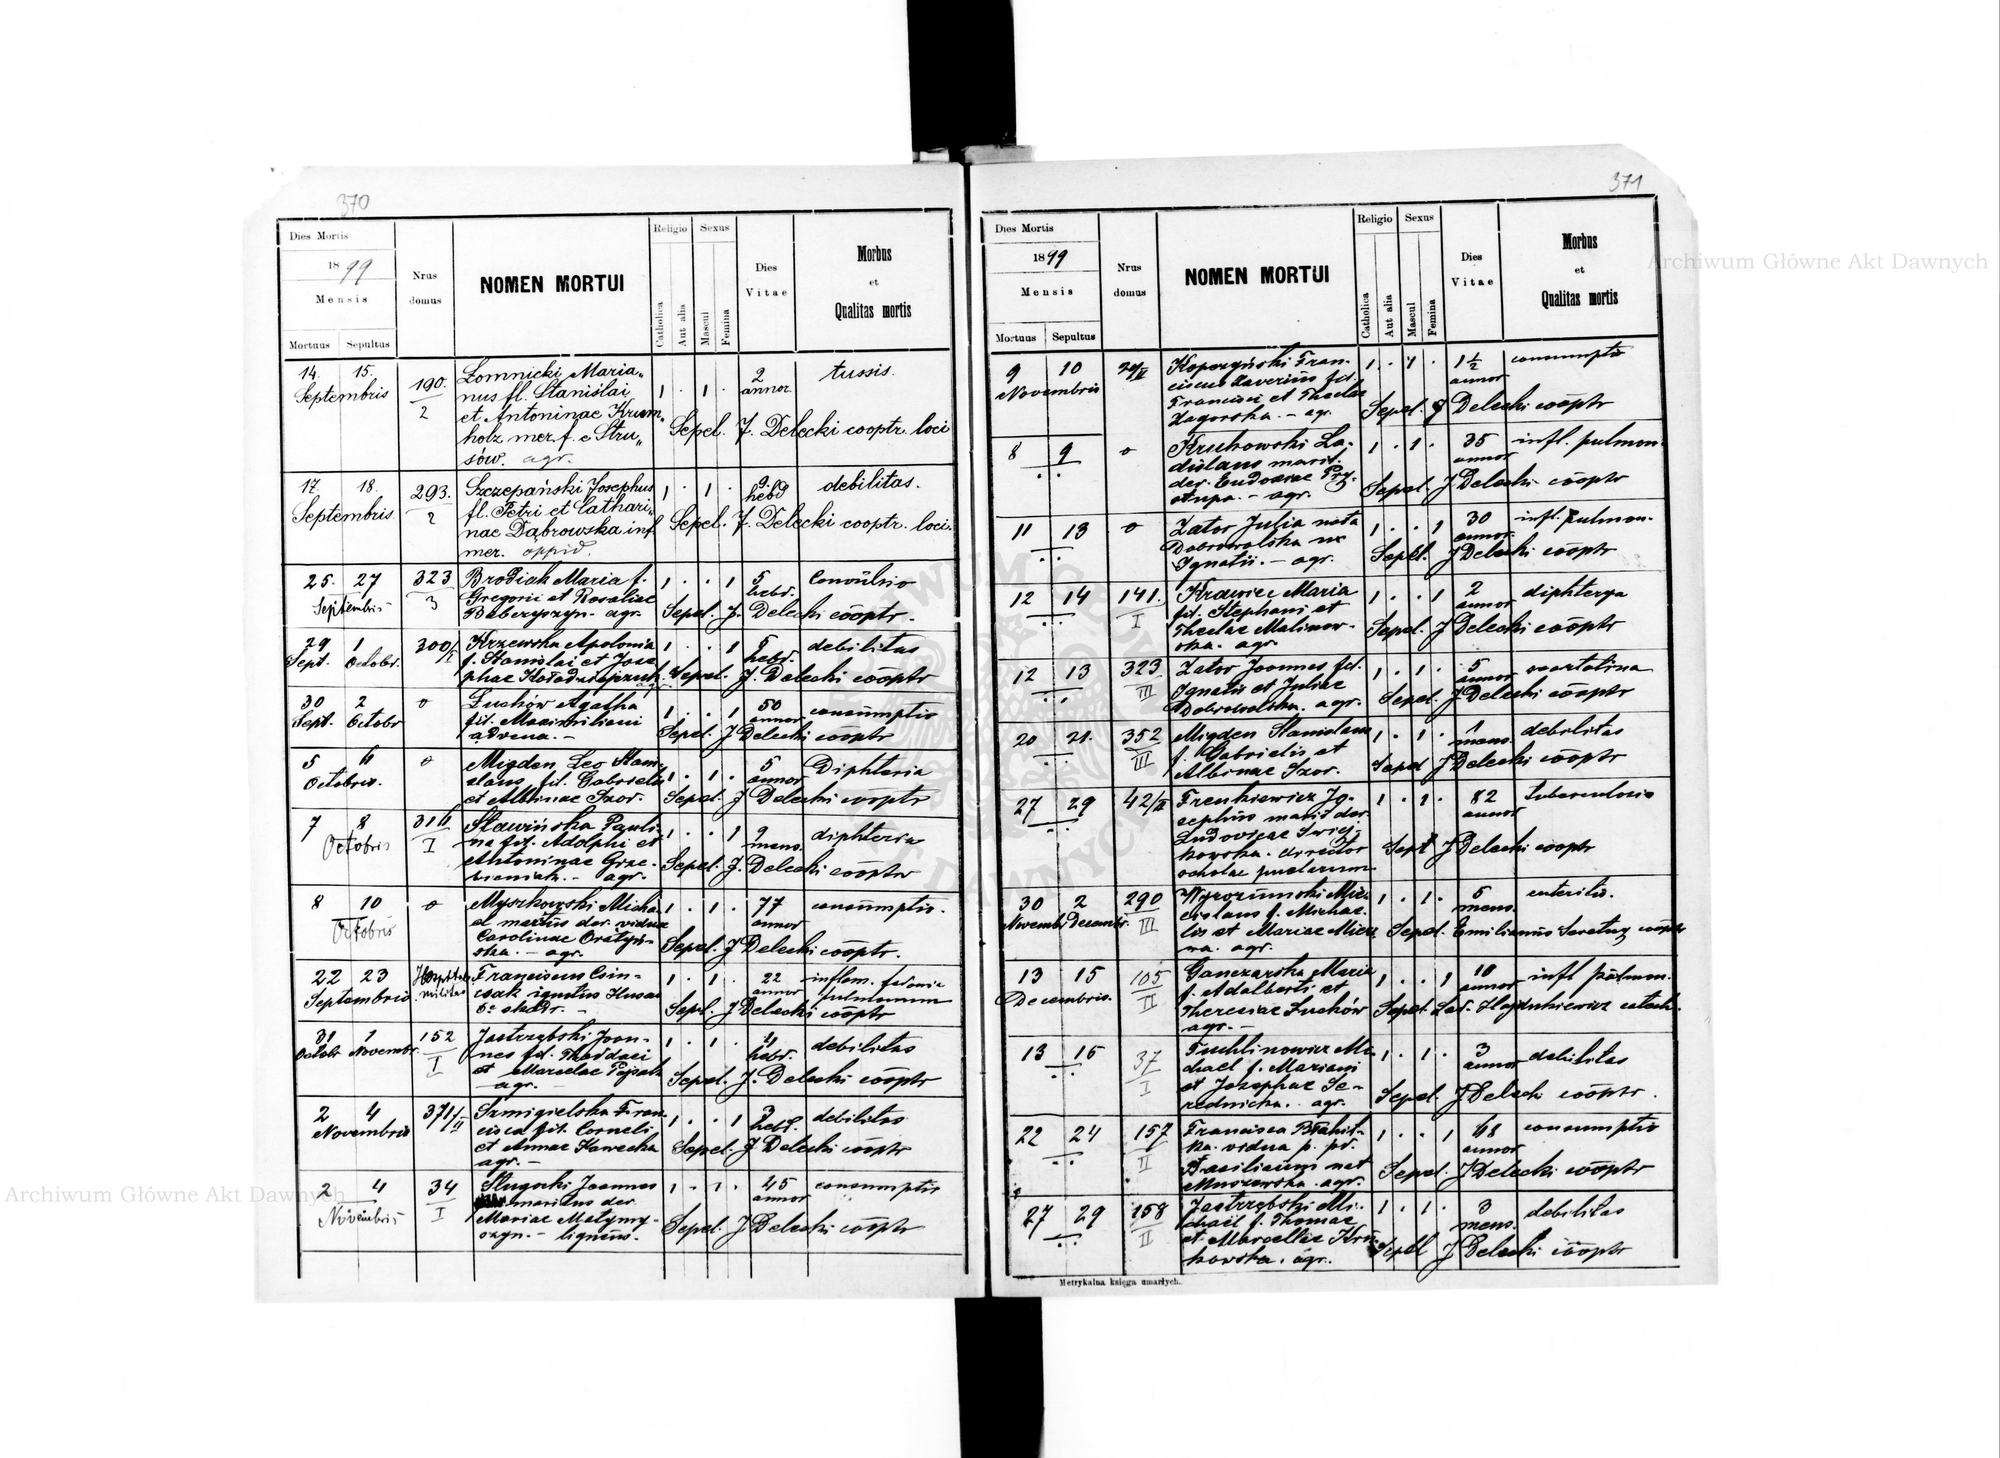 370
Dies Mortis
1899
Mensis
Mortuus Sepultus
Nrus domus
NOMEN MORTUI
Religio
Catholica
Aut alia
Sexus
Mascul
Femina
Dies Vitae
Morbus et Qualitas mortis
14. 15. Septembris
190. 2
Łomnicki Maria„
nus fl. Stanislai
et Antoninae Krum„
holz mer. f. e Stru„
sów. agr.
1 . 1 .
2 annor.
tussis.
Sepel. J. Delecki cooptr. loci
17. 18. Septembris.
293. 2
Szczepański Josephus
fl. Petri et Cathari„
nae Dąbrowska inf.
mer. oppid.
1 . 1 .
9 hebd
debilitas.
Sepel. J. Delecki cooptr. loci.
25. 27 Septembris
323 3
Brodiak Maria f.
Gregorii et Rosaliae
agr.
1 . . 1
5 hebd.
Convulsio
Sepel. J. Delecki cooptr.
29 Sept. 1 Octobr.
300/I
Krzewska Apolonia
f. Stanislai et Jose
phae
1 . . 1
5 hebd.
debilitas
Sepel. J. Delecki cooptr
30 Sept. 2 Octobr
o
Łuchów Agatha
fil. Maximiliani
advena. –
1 . . 1
50 annor
consumptio
Sepel. J Delecki cooptr
5 6 Octobris.
o
Migden Leo Stani
slaus fil. Gabrielis
et Albinae Szor.
1 . 1 .
5 annor
Diphteria
Sepel. J Delecki cooptr
7 8 Octobris
316 I
Sławińska Pauli
na fil. Adolphi et
Antoninae Grze
bieniak. – agr.
1 . . 1
9 mens.
diphteria
Sepel. J. Delecki cooptr
8 10 Octobris
o
Myszkowski Micha
el maritus der. viduae
Carolinae
ska. – agr.
1 . 1 .
77 annor
consumptio.
Sepel. J Delecki cooptr.
22 23 Septembris
militas
Franciscus
ignotus
1 . 1 .
22 annor
inflam.
pulmonum
Sepel. J Delecki cooptr
31 Octobr 1 Novembr.
152 I
Jastrzębski Joan-
nes fil. Thaddaei
et Marcelae Pajsak
– agr. –
1 . 1 .
4 hebd.
debilitas
Sepel. J. Delecki cooptr
2 4 Novembris
371/II
Szmigielska Fran
cisca fil. Corneli
et Annae Kawecka
agr. –
1 . . 1
3 hebd.
debilitas
Sepel. J Delecki cooptr
2 4 Novembris
34 I
Sługocki Joannes
maritus der.
Mariae Matyny-
szyn. –
1 . 1 .
45 annor
consumptio
Sepel. J Delecki cooptr
371
Dies Mortis
1899
Mensis
Mortuus Sepultus
Nrus domus
NOMEN MORTUI
Religio
Catholica
Aut alia
Sexus
Mascul
Femina
Dies Vitae
Morbus et Qualitas mortis
9 10 Novembris
Kopczyński Fran-
ciscus Xaverius fil.
Francisci et Theclae
Zagorska. – agr.
1 . 1 .
1½ annor
consumptio
Sepel. J Delecki cooptr
8 9
o
Krukowski La-
dislaus marit.
der. Eudoxiae Pry-
stupa. – agr.
1 . 1 .
35 annor
infl. pulmon.
Sepel. J Delecki cooptr
11 13
o
Zator Julia nata
Dobrowolska ux
Ignatii. – agr.
1 . . 1
30 annor
infl. pulmon.
Sepel. J Delecki cooptr
12 14
141. I
Krawiec Maria
fil. Stephani et
Theclae Malinow-
ska. agr.
1 . . 1
2 annor
diphterya
Sepel. J Delecki cooptr
12 13
323 III
Zator Joannes fil.
Ignatii et Juliae
Dobrowolska. agr.
1 . 1 .
5 annor
scartatina
Sepel. J Delecki cooptr
20 21.
352 III
Migden Stanislaus
f. Gabrielis et
Albinae Szor.
1 . 1 .
1 mens.
debilitas
Sepel J Delecki cooptr
27 29
42/II
Frenkiewicz Jo-
sephus marit der.
Ludovicae
kowska. director
scholae puellarum
1 . 1 .
82 annor
tuberculosis
Sepel J Delecki cooptr
30 Novembr 2 Decembr.
290 III
Wyrozumski Mie
cislaus f. Michae
lis et Mariae
na. agr.
1 . 1 .
5 mens.
enteritis.
Sepel. Emilianus cooptr
13 15 Decembris.
105 II
Ganczarska Maria
f. Adalberti et
Theresiae Łuchów
agr. –
1 . . 1
10 annor
infl pulmon.
Sepel. Lad. Hajdukiewicz catech.
13 15
37 I
Tuchlinowicz Mi
chael f. Mariani
et Josephae Se-
rednicka. agr.
1 . 1 .
3 annor
debilitas
Sepel. J Delecki cooptr.
22 24
157 II
Francisca
ka. vidua p. pd.
Basilianum nat
Muszewska. agr.
1 . . 1
68 annor
consumptio
Sepel. J Delecki cooptr
27 29
158 II
Jastrzębski Mi-
chail f. Thomae
et Marcellae Kru
kowska. agr.
1 . 1 .
3 mens.
debilitas
Sepel J Delecki cooptr
Metrykalna księga umarłych.
Archiwum Główne Akt Dawnych
Archiwum Główne Akt Dawnych